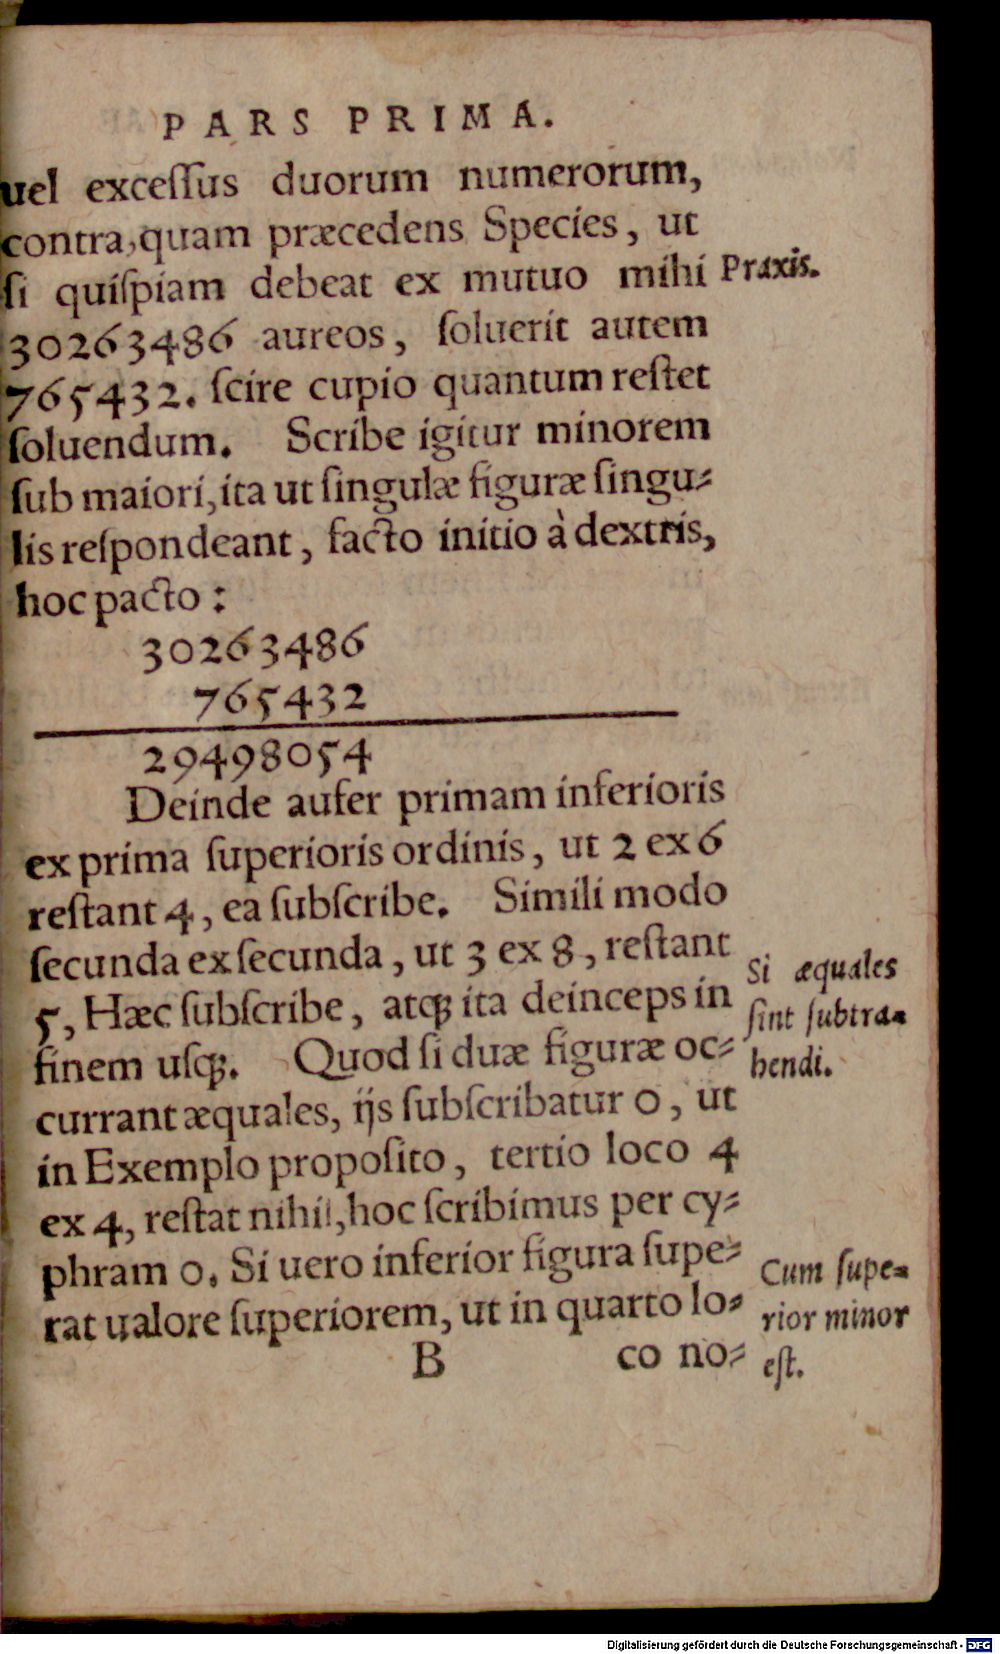 PARS PRIMA.
uel exceſſus duorum numerorum,
contra, quam præcedens Species, ut
ſi quiſpiam debeat ex mutuo mihi
Praxis.
30263486 aureos, ſoluerit autem
765432. ſcire cupio quantum reſtet
ſoluendum. Scribe igitur minorem
ſub maiori, ita ut ſingulæ figuræ ſingu⸗
lis reſpondeant, facto initio à dextris,
hoc pacto:
30263486
765432
29498054
Deinde aufer primam inferioris
ex prima ſuperioris ordinis, ut 2 ex 6
reſtant 4, ea ſubſcribe. Simili modo
ſecunda ex ſecunda, ut 3 ex 8, reſtant
5, Hæc ſubſcribe, atqꝫ ita deinceps in
finem uſqꝫ. Quod ſi duæ figuræ oc⸗
Si æquales
ſint ſubtra⸗
hendi.
currant æquales, ijs ſubſcribatur 0, ut
in Exemplo propoſito, tertio loco 4
ex 4, reſtat nihil, hoc ſcribimus per cy⸗
phram 0. Si uero inferior figura ſupe⸗
rat ualore ſuperiorem, ut in quarto lo⸗
Cum ſupe⸗
rior minor
eſt.
B co no⸗
Digitalisierung gefördert durch die Deutsche Forschungsgemeinschaft - DFG